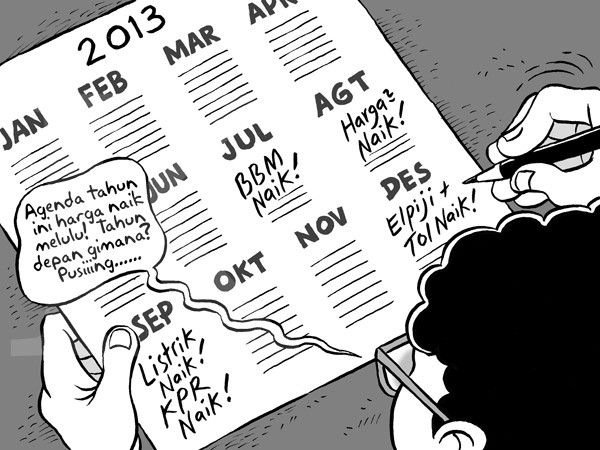 2013
JAN
FEB
MAR
APR
JUN
JUL
BBM
Naik!
AGT
Harga2
Naik!
SEP
Listrik
Naik!
KPR
Naik!
OKT
NOV
DES
Elpiji +
Tol Naik!
Agenda tahun
ini harga naik
melulu! Tahun
depan gimana?
Pusiiing......